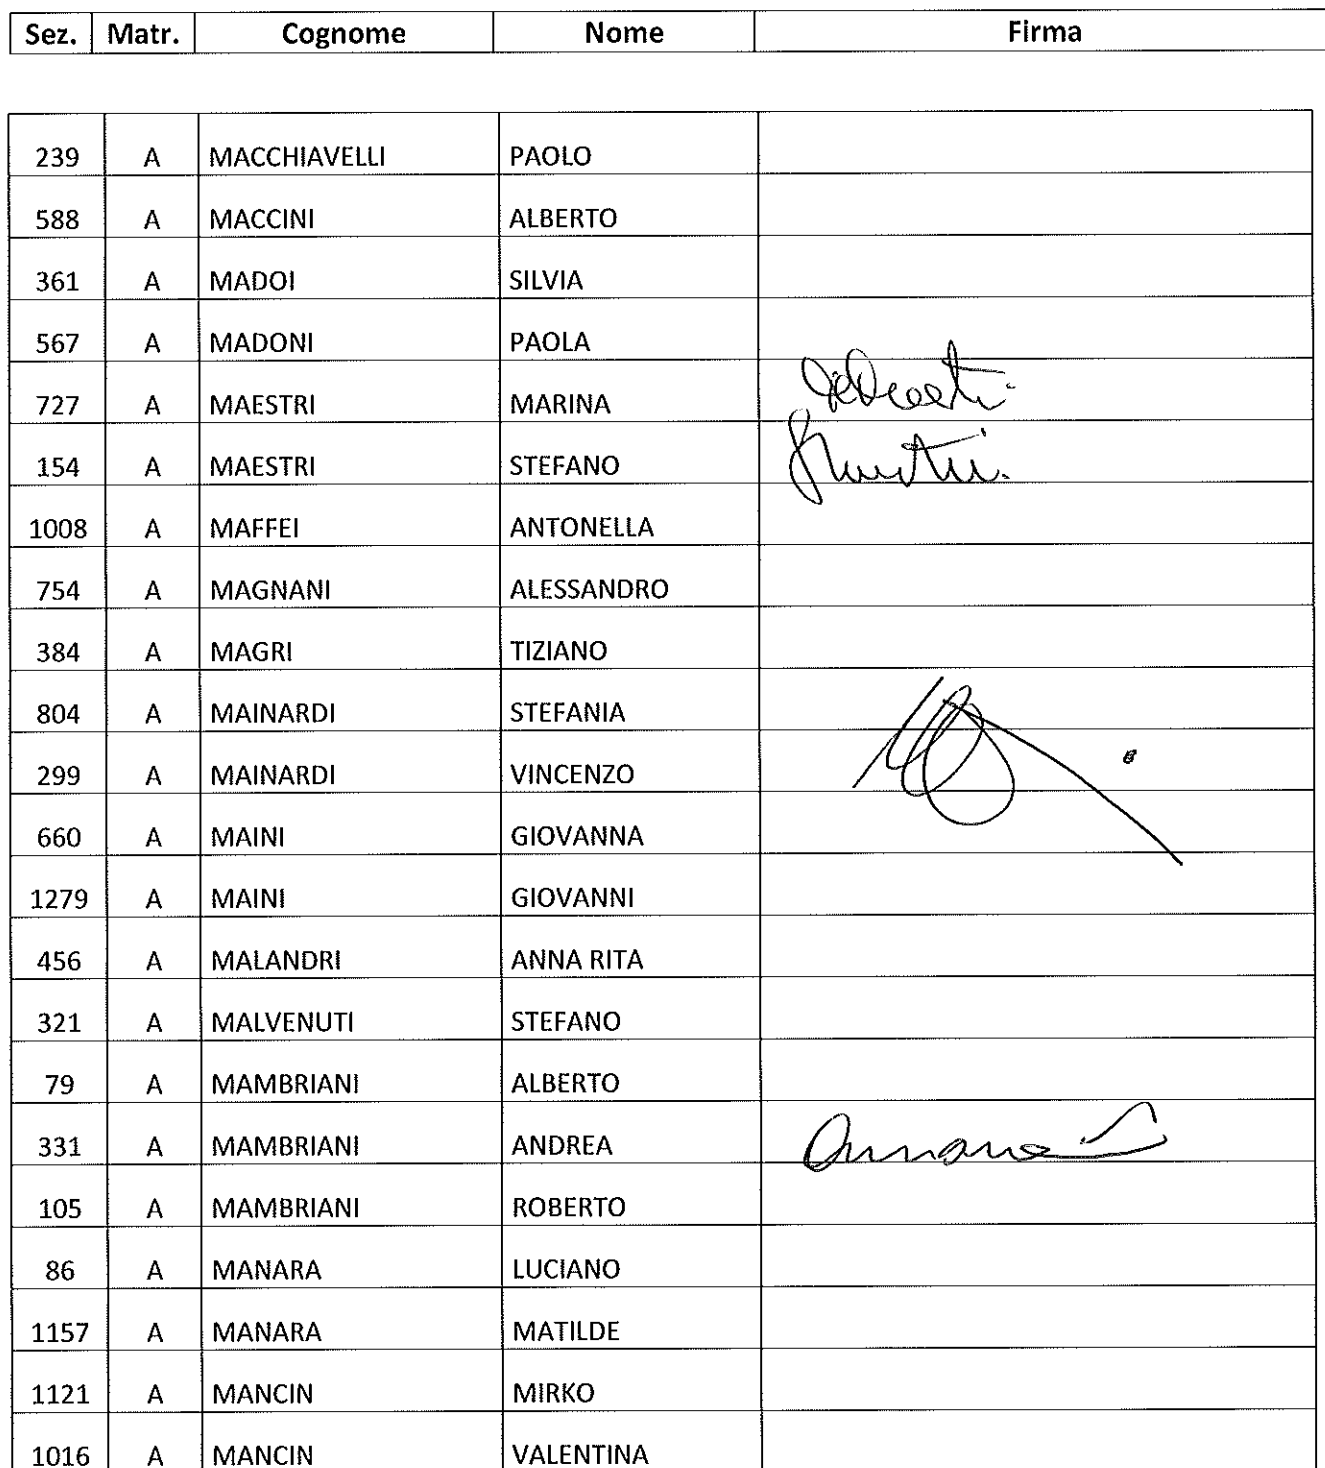 Sez. Matr. Cognome Nome Firma
239 A MACCHIAVELLI PAOLO
588 A MACCINI ALBERTO
361 A MADOI SILVIA
567 A MADONI PAOLA
727 A MAESTRI MARINA
154 A MAESTRI STEFANO
1008 A MAFFEI ANTONELLA
754 A MAGNANI ALESSANDRO
384 A MAGRI TIZIANO
804 A MAINARDI STEFANIA
299 A MAINARDI VINCENZO
660 A MAINI GIOVANNA
1279 A MAINI GIOVANNI
456 A MALANDRI ANNA RITA
321 A MALVENUTI STEFANO
79 A MAMBRIANI ALBERTO
331 A MAMBRIANI ANDREA
105 A MAMBRIANI ROBERTO
86 A MANARA LUCIANO
1157 A MANARA MATILDE
1121 A MANCIN MIRKO
1016 A MANCIN VALENTINA